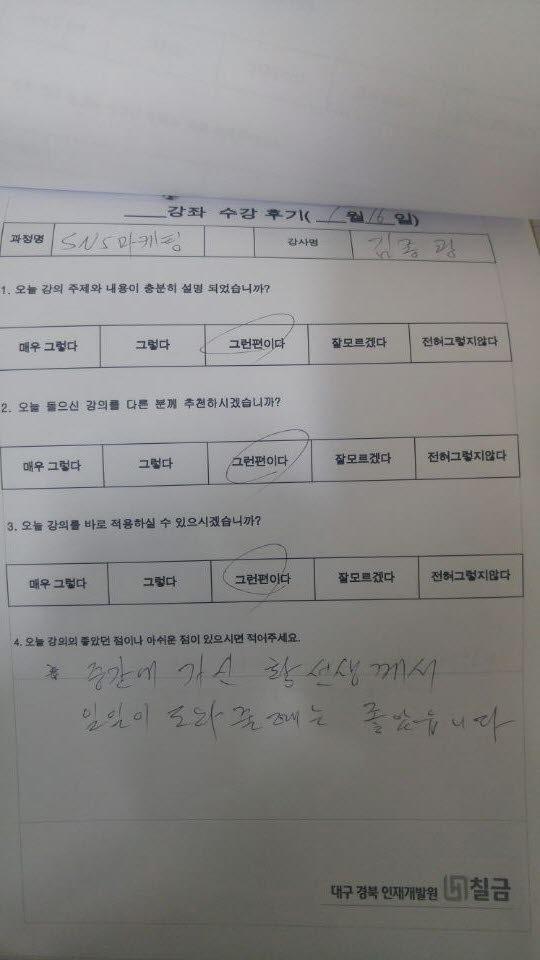 강좌 수강 후기( 1월 16일)
과정명 SNS마케팅 강사명 김종광
1. 오늘 강의 주제와 내용이 충분히 설명 되었습니까?
매우 그렇다 그렇다 그런편이다 잘모르겠다 전혀그렇지않다
2. 오늘 들으신 강의를 다른 분께 추천하시겠습니까?
매우 그렇다 그렇다 그런편이다 잘모르겠다 전혀그렇지않다
3. 오늘 강의를 바로 적용하실 수 있으시겠습니까?
매우 그렇다 그렇다 그런편이다 잘모르겠다 전혀그렇지않다
4. 오늘 강의의 좋았던 점이나 아쉬운 점이 있으시면 적어주세요.
중간에 가신 선생께서
일일이 도와 좋았읍니다
대구 경북 인재개발원 칠금